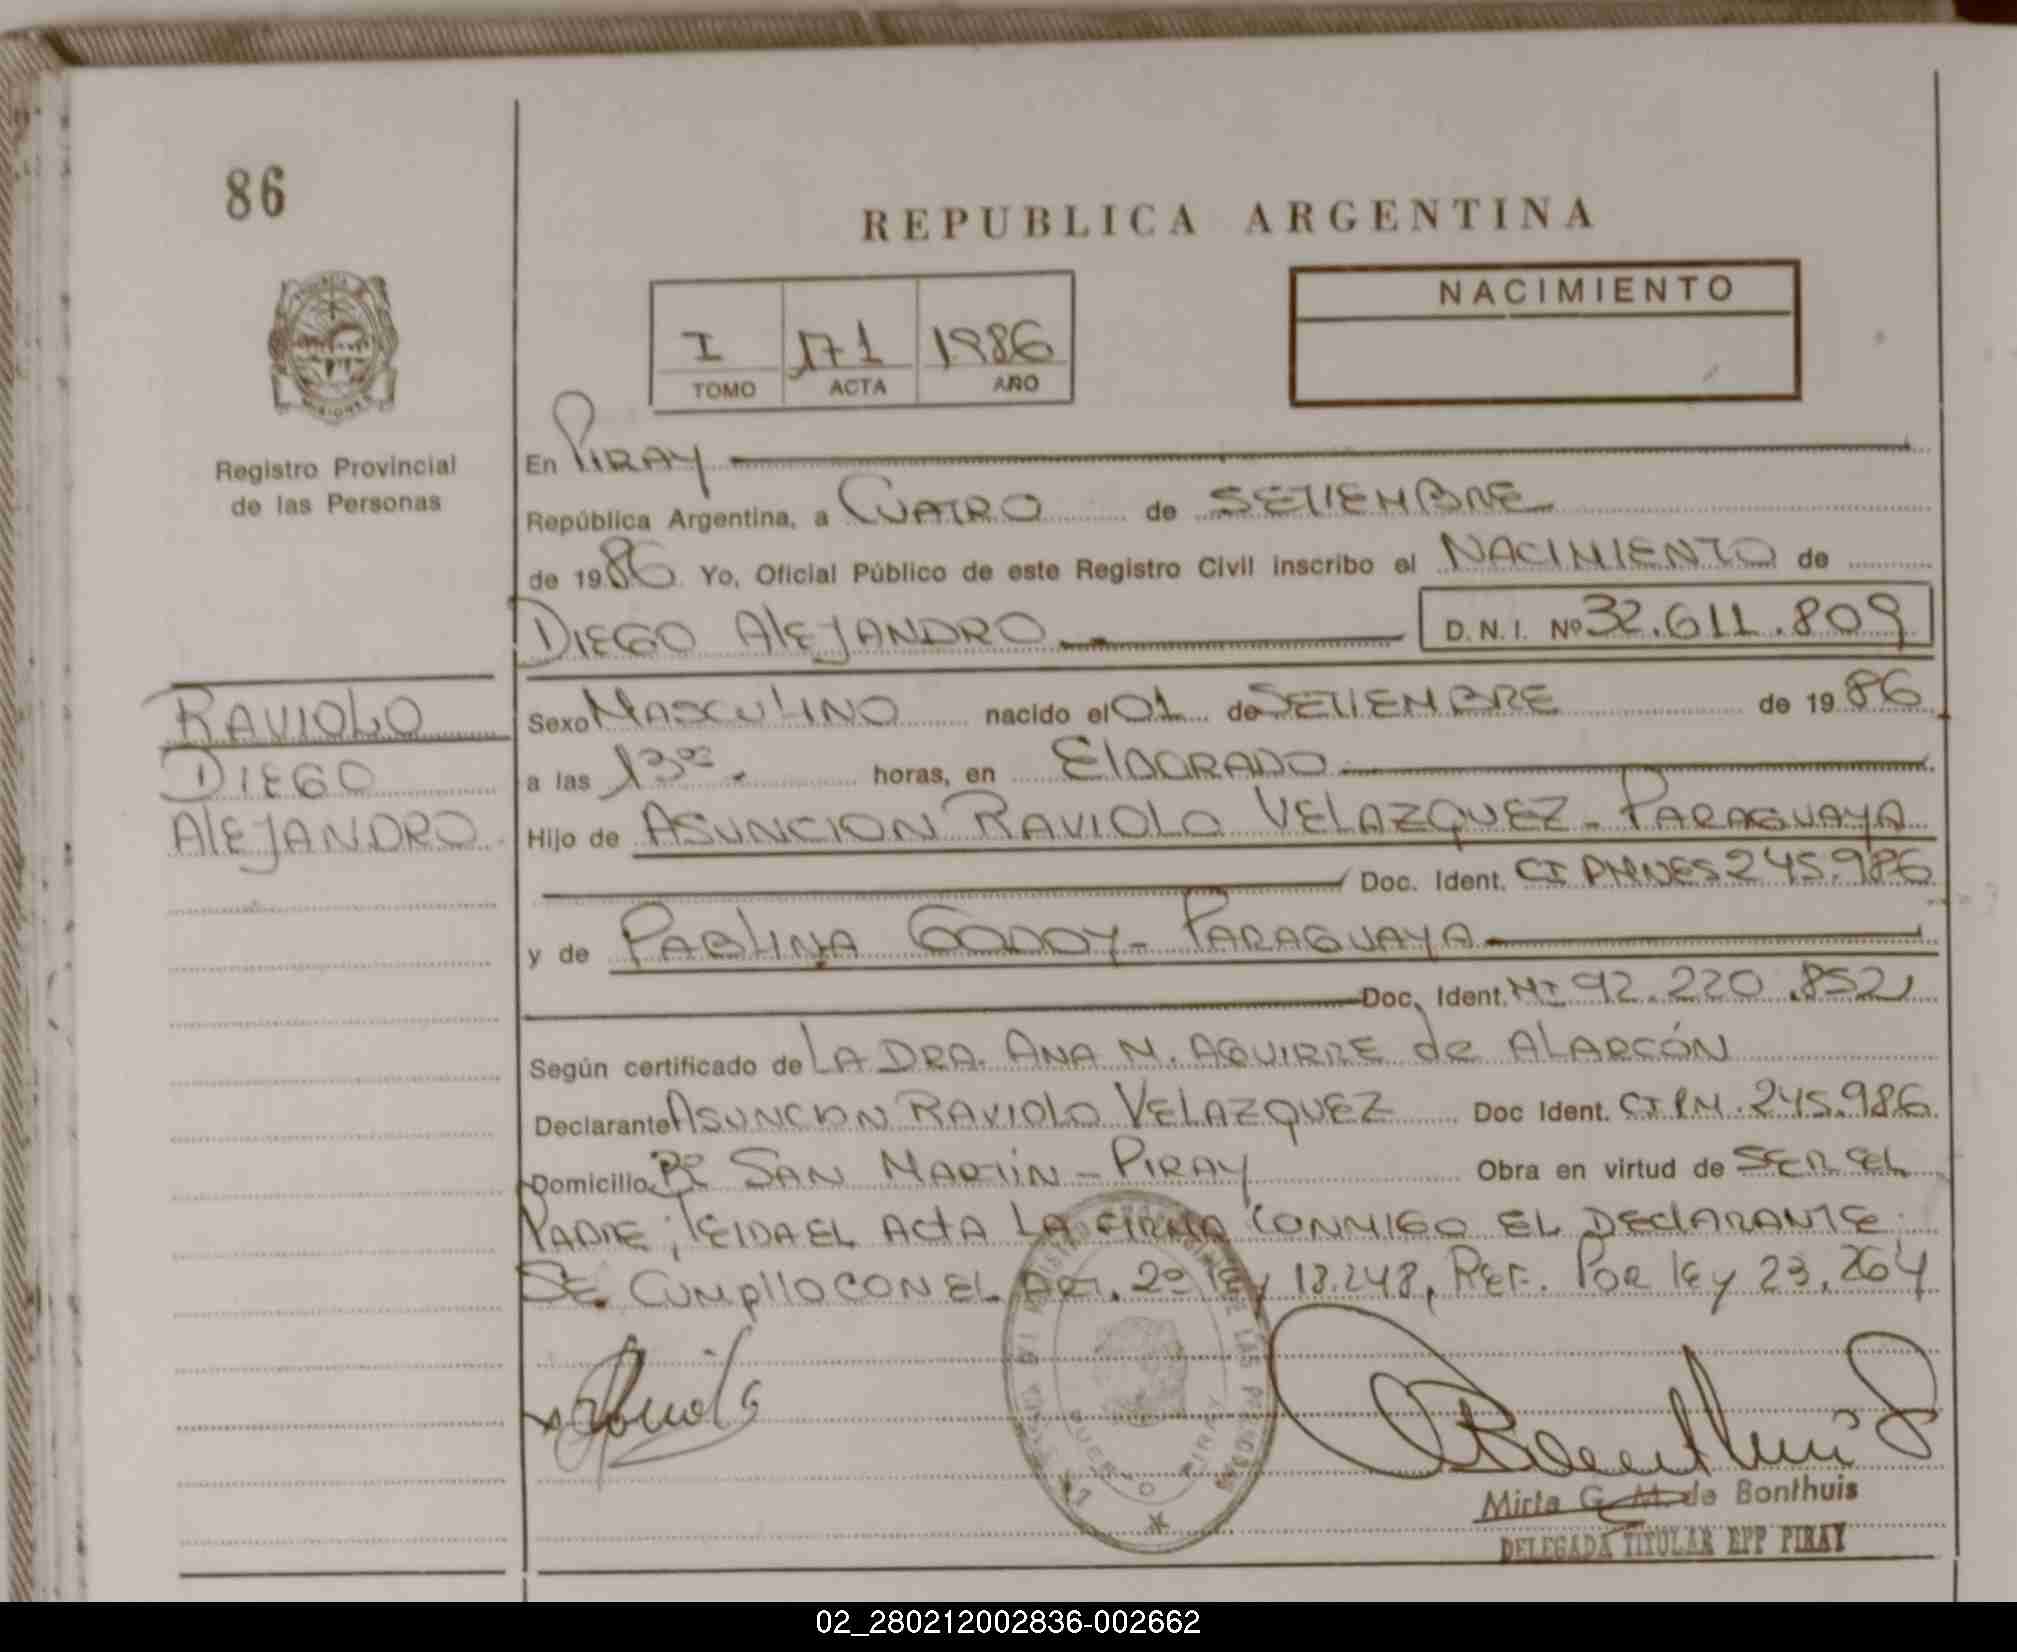 86
REPUBLICA ARGENTINA
NACIMIENTO
I 171 1986
TOMO ACTA AÑO
MISIONES
Registro Provincial
de las Personas
En PIRAY
República Argentina, a CUATRO de SETIEMBRE
de 1986 Yo, Oficial Público de este Registro Civil inscribo el NACIMIENTO de
DIEGO AlEJANDRO D.N.I. Nº 32.611.809
RAVIOLO
DIEGO
AlEJANDRO
Sexo MASCULINO nacido el 01 de SETIEMBRE de 1986
a las 13 horas, en ElDORADO
Hijo de ASUNCION RAVIOLO VELAZQUEZ - PARAGUAYA
Doc. Ident. CI 245.986
y de PABLINA GODOY - PARAGUAYA
Doc. Ident. MI 92.220.852
Según certificado de LA DRA. ANA M. AGUIRRE de ALARCÓN
Declarante ASUNCION RAVIOLO VELAZQUEZ Doc Ident. CIPM. 245.986
Domicilio Bº SAN MARTIN - PIRAY Obra en virtud de SER EL
PADRE; lEIDA EL ACTA LA FIRMA CONMIGO EL DEClARANTE.
SE CUMPlIO CON EL ART. 2º lEy 18.248, REF. POR lEy 23.264
PUERTO PIRAY
Mirta G. M. de Bonthuis
DELEGADA TITULAR RPP PIRAY
02_280212002836-002662